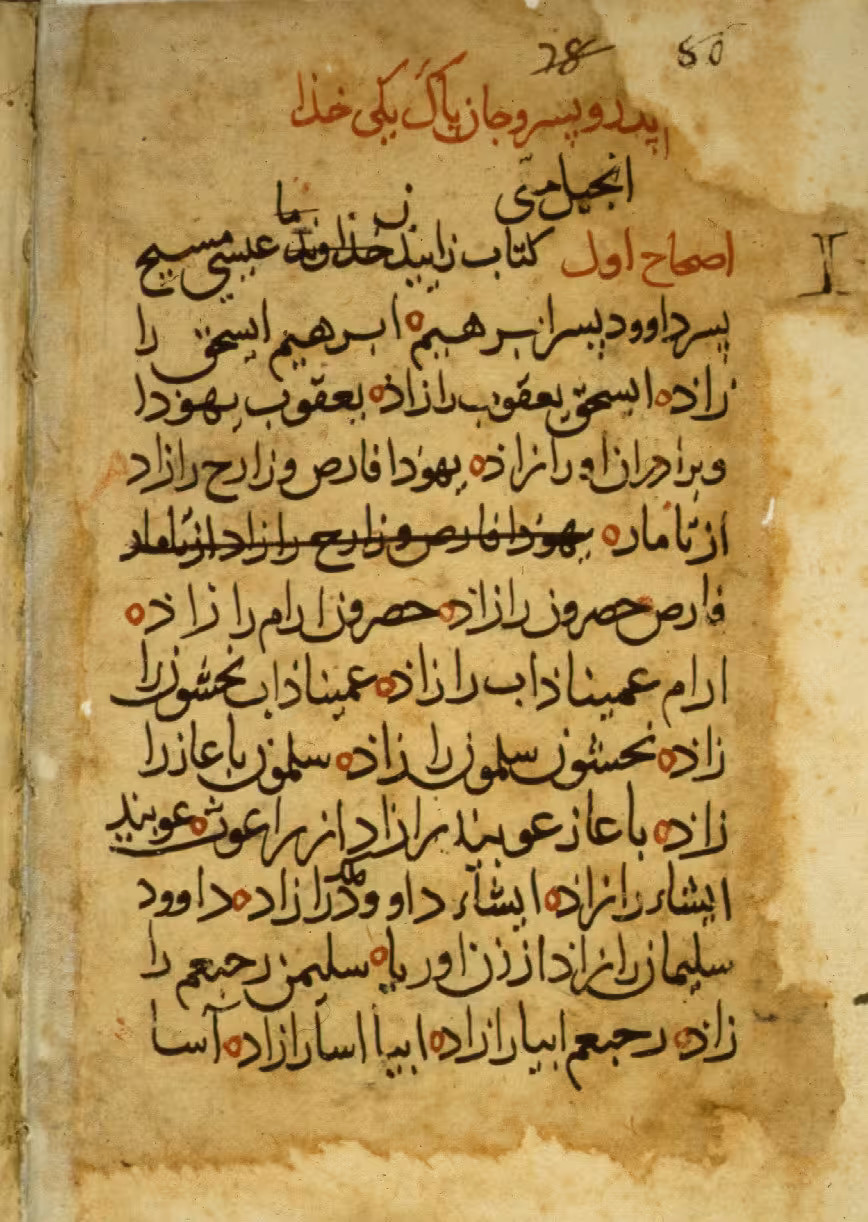 28 50
اپدر و پسر و جان پاک یکی خذا
انجیل متی
ن ما
اصحاح اول کتاب زاییدن خذاوند عیسی مسیح
I
پسر داوود پسر ابرهیم ه ابرهیم ایسحق را
زاذه ایسحق یعقوب را زاذه یعقوب یهوذا
و براذران او را زاذه یهوذا فارص و زارح را زاد
از تاماره یهوذا فارص و زارح را زاد از تامار
فارص حصرون را زاذه حصرون ارام را زاذه
ارام عمیناذاب را زاذه عمیناذاب نحشون را
زاذه نحشون سلمون را زاذه سلمون باعاز را
زاده باعاز عوبید را زاد از راعوث ه عوبید
ایشاء را زاده ایشاء داوود ملک را زاده داوود
سلیمان را زاد از زن اوریا ه سلیمن رحبعم را
زاده رحبعم ابیا را زاده ابیا اسا را زاده آسا